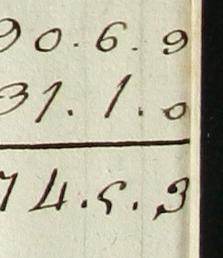 90.6.9
31.1.0
74.5.3